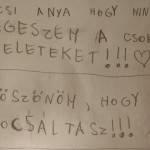 CSI ANYA HOGY NIN
EGESZEM A CSOK
ELETEKET!!!♡
ÖSZÖNÖM, HOGY
OCSÁLTASZ!!!